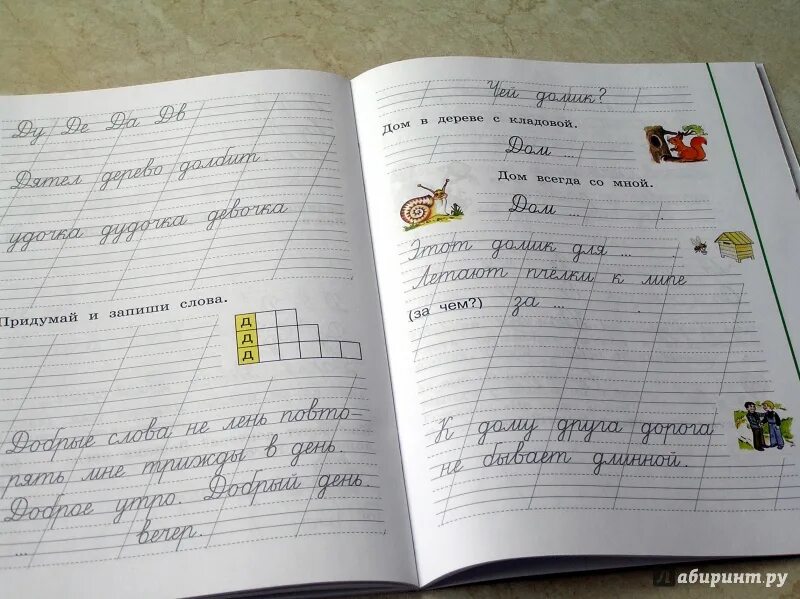 Ду Де Да Дв
Дятел дерево долбит.
удочка дудочка девочка
Придумай и запиши слова.
Д
Д
Д
Добрые слова не лень повто-
рять мне трижды в день.
Доброе утро. Добрый день.
... вечер.
Чей домик?
Дом в дереве с кладовой.
Дом ...
Дом всегда со мной.
Дом ... .
Этот домик для ... .
Летают пчёлки к липе
(за чем?) за ... .
К дому друга дорога
не бывает длинной.
Лабиринт.ру